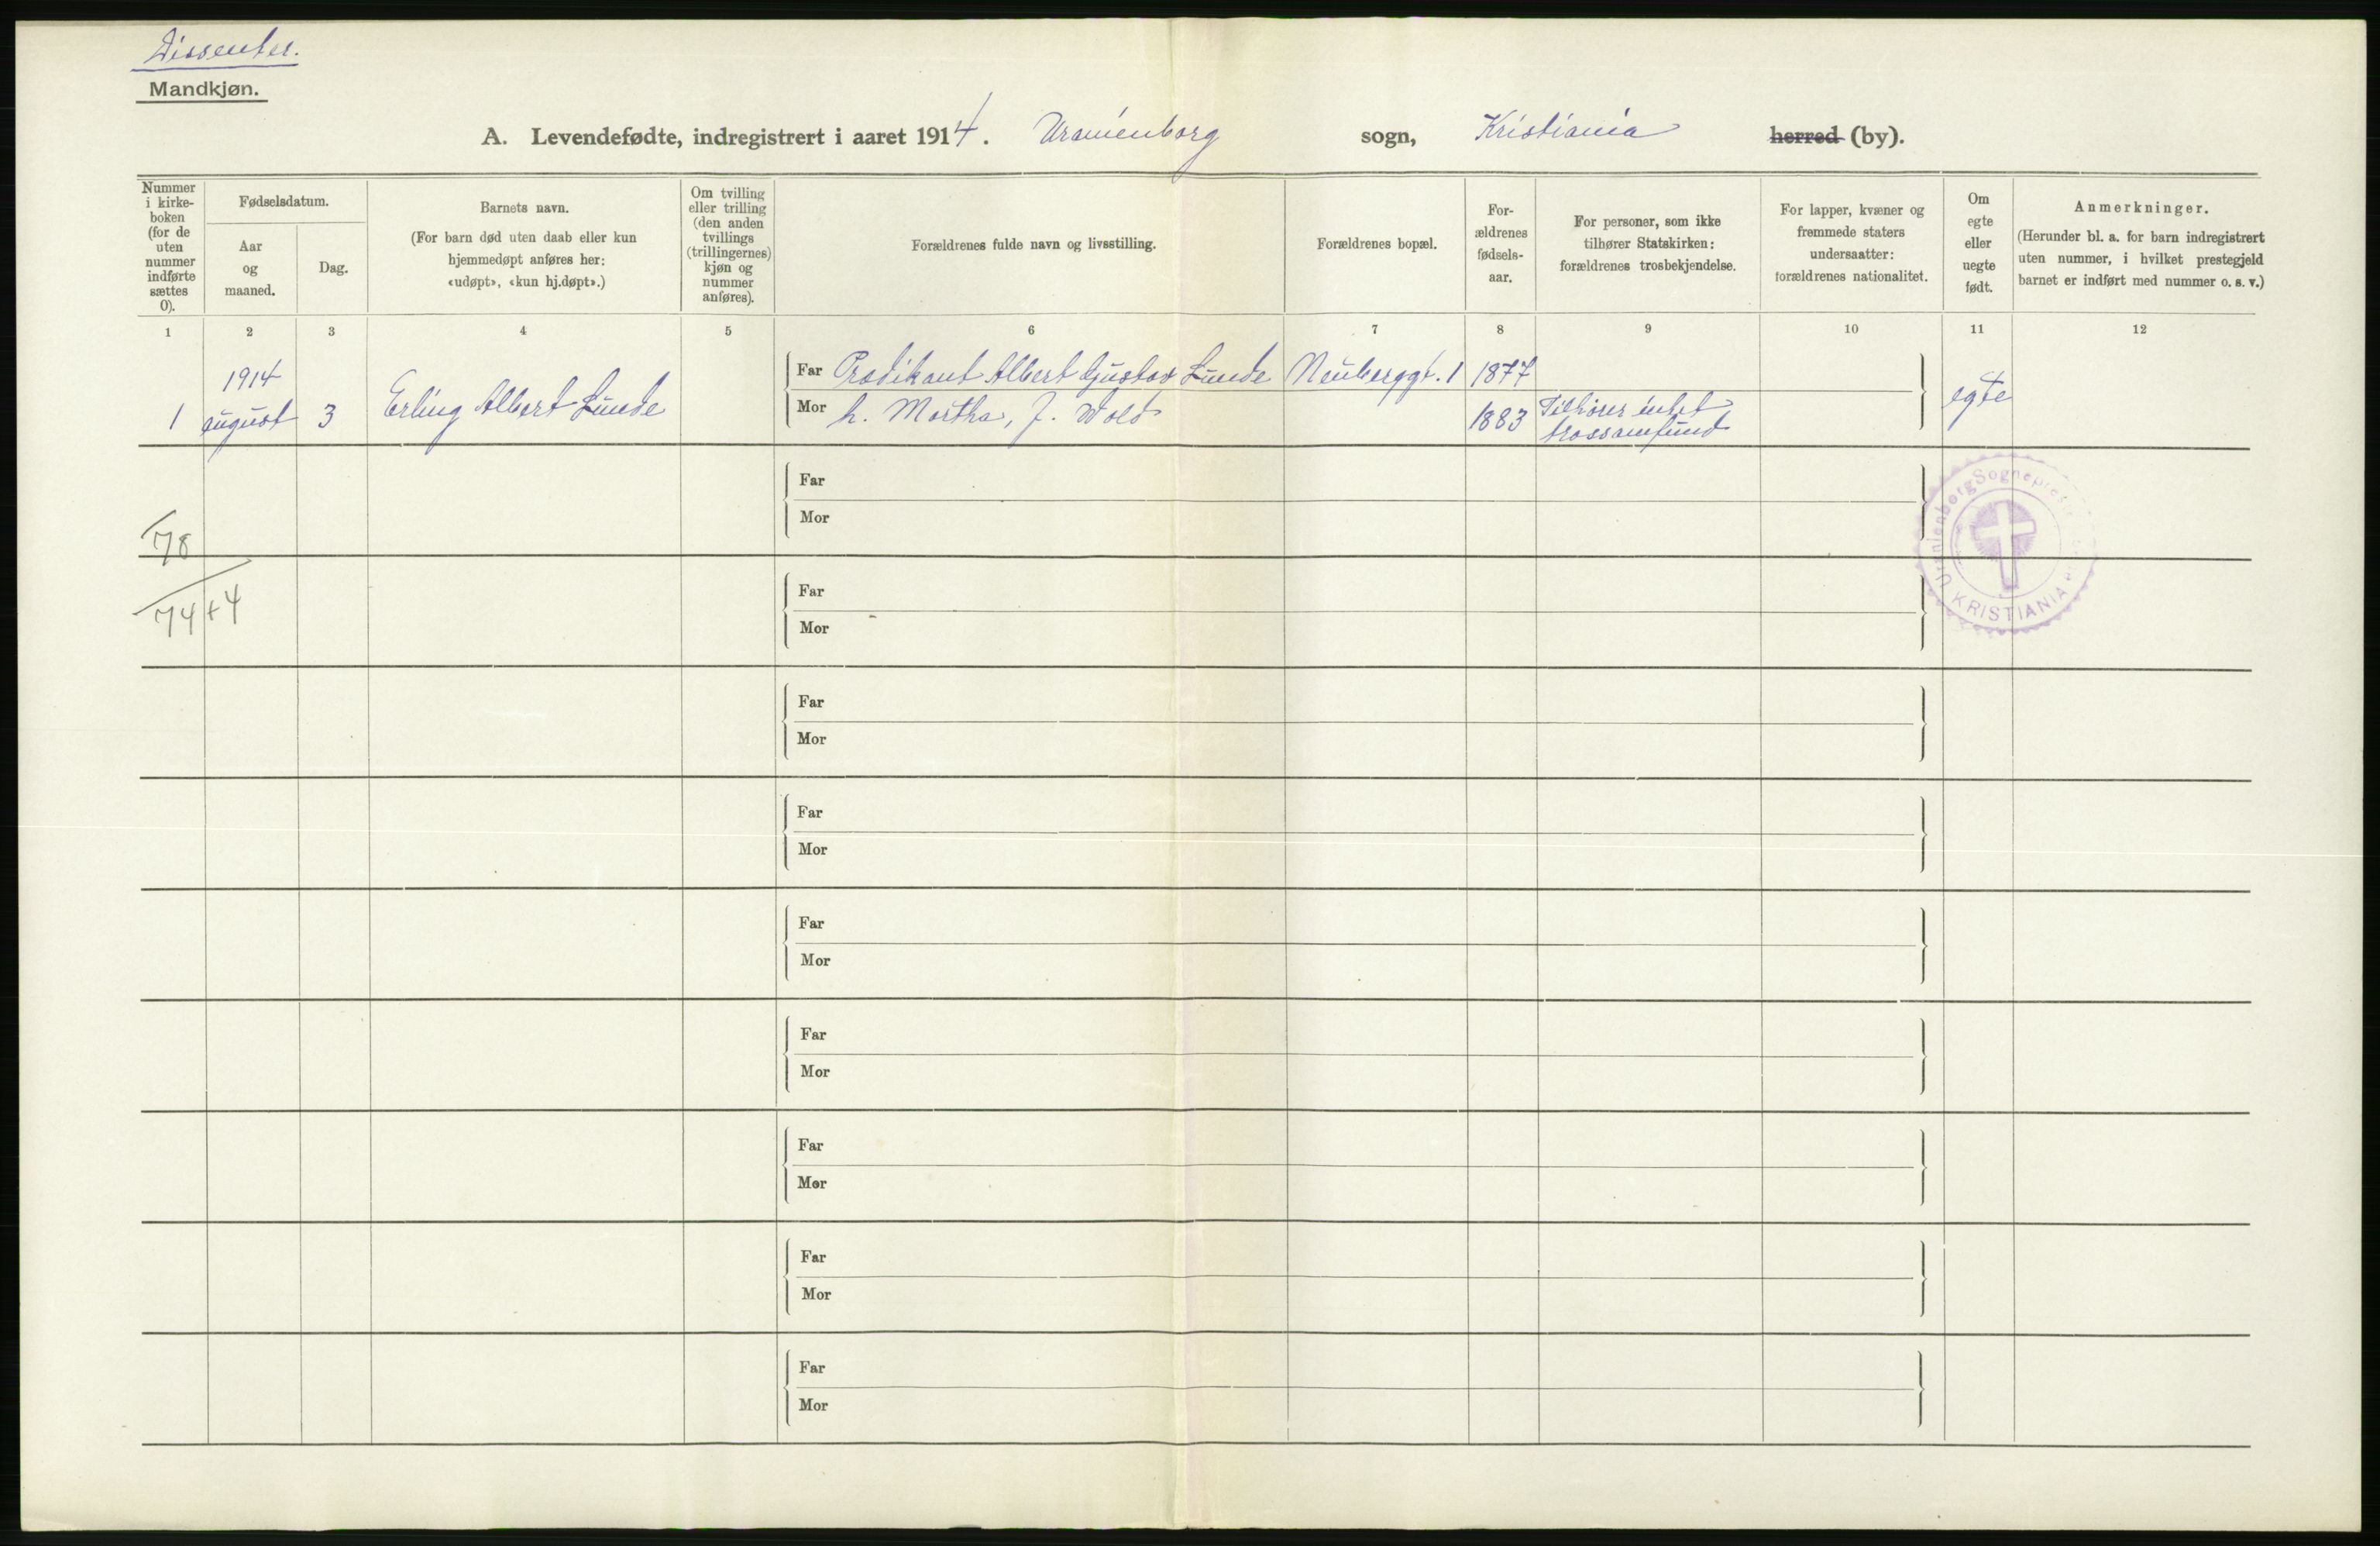 Dissenter.
Mandkjøn.
A. Levendefødte, indregistrert i aaret 1914. Uranienborg sogn, Kristiania herred (by).
Nummer i kirke-boken (for de uten nummer indførte sættes 0).
Fødselsdatum.
Aar og maaned.
Dag.
Barnets navn.
(For barn død uten daab eller kun hjemmedøpt anføres her: «udøpt», «kun hj.døpt».)
Om tvilling eller trilling (den anden tvillings (trillingernes) kjøn og nummer anføres).
Forældrenes fulde navn og livsstilling.
Forældrenes bopæl.
For-ældrenes fødsels-aar.
For personer, som ikke tilhører Statskirken: forældrenes trosbekjendelse.
For lapper, kvæner og fremmede staters undersaatter: forældrenes nationalitet.
Om egte eller uegte født.
Anmerkninger.
(Herunder bl. a. for barn indregistrert uten nummer, i hvilket prestegjeld barnet er indført med nummer o. s. v.)
1 2 3 4 5 6 7 8 9 10 11 12
1914
1 august 3 Erling Albert Lunde
Far Prædikant Albert Gustav Lunde Neuberggt. 1 1877
Mor h. Martha, f. Wold 1883 Tilhører intet trossamfund
egte
Far
Mor
78
Uranienborg Sogneprest
KRISTIANIA
Far
74+4
Mor
Far
Mor
Far
Mor
Far
Mor
Far
Mor
Far
Mor
Far
Mor
Far
Mor